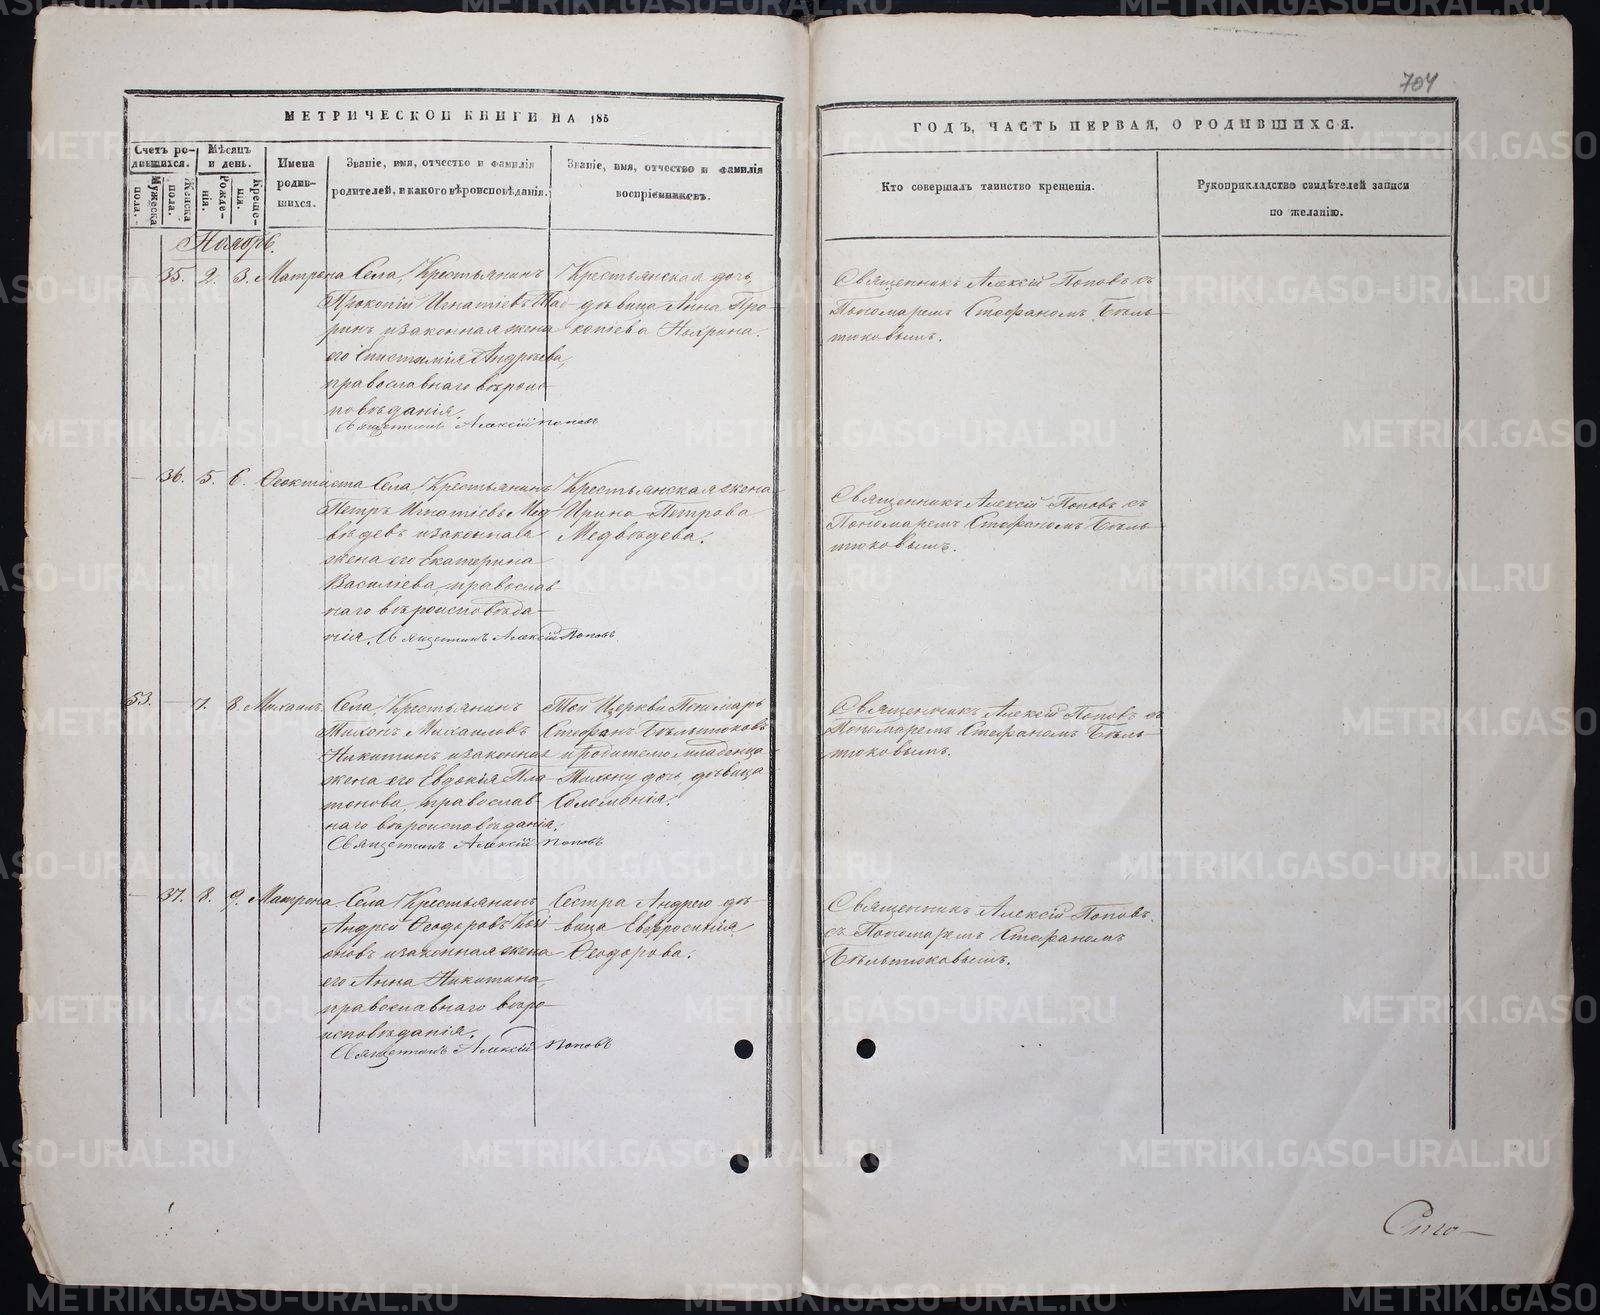 704
МЕТРИЧЕСКОЙ КНИГИ НА 185
ГОДЪ, ЧАСТЬ ПЕРВАЯ, О РОДИВШИХСЯ.
Счетъ ро-
дившихся.
Мужеска
пола.
Женска
пола.
Мѣсяцъ
и день.
Рожде-
нія.
Креще-
нія.
Имена
родив-
шихся.
Званіе, имя, отчество и фамилія
родителей, и какого вѣроисповѣданія.
Званіе, имя, отчество и фамилія
воспріемниковъ.
Кто совершалъ таинство крещенія.
Рукоприкладство свидѣтелей записи
по желанію.
Ноябрь.
35. 2. 3. Матрона
Села, Крестьянинъ
Прокопій Игнатіевъ
ринъ и законная жена
его Епистимія Андреева,
православнаго вѣроис-
повѣданія.
Священникъ Алексій Поповъ
Крестьянская дочь,
дѣвица Анна Про-
копіева
Священникъ Алексій Поповъ съ
Пономаремъ Стефаномъ Бѣль-
тюковымъ.
36. 5. 6. Феоктиста
Села Крестьянинъ
Петръ Игнатіевъ Мед-
вѣдевъ и законная
жена его Екатерина
Василіева, православ-
наго вѣроисповѣда-
нія. Священникъ Алексій Поповъ
Крестьянская жена
Ирина Петрова
Медвѣдева.
Священникъ Алексій Поповъ съ
Пономаремъ Стефаномъ Бѣль-
тюковымъ.
53. 7. 8. Михаилъ
Села, Крестьянинъ
Тихонъ Михаиловъ
Никитинъ и законная
жена его Евдокія Пла-
тонова, православ-
наго вѣроисповѣданія.
Священникъ Алексій Поповъ
Той Церкви Пономарь
Стефанъ Бѣльтюковъ
и родителю младенца
Тихону дочь, дѣвица
Соломонія.
Священникъ Алексій Поповъ съ
Пономаремъ Стефаномъ Бѣль-
тюковымъ.
37. 8. 9. Матрона
Села Крестьянинъ
Андрей Феодоровъ
оновъ и законная жена
его Анна Никитина,
православнаго вѣро-
исповѣданія.
Священникъ Алексій Поповъ
Сестра Андрею дѣ-
вица Евфросинія
Феодорова.
Священникъ Алексій Поповъ
съ Пономаремъ Стефаномъ
Бѣльтюковымъ.
METRIKI.GASO-URAL.RU